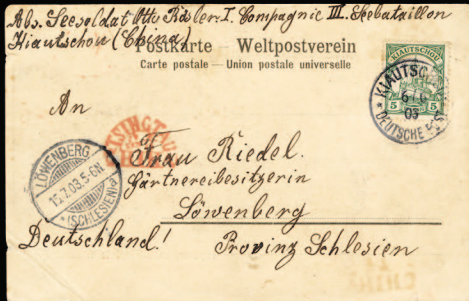 Abs. Seesoldat Otto Rösler. I. Compagnie III. Seebataillon
Kiautschou (China)
Postkarte — Weltpostverein
Carte postale — Union postale universelle
KIAUTSCHOU
5 5
KIAUTSCHOU
03
DEUTSCHE POST
An
TSINGTAU
Frau Riedel.
Gärtnereibesitzerin
Löwenberg
Deutschland! Provinz Schlesien
LÖWENBERG
15.7.03.5-6N
(SCHLESIEN)